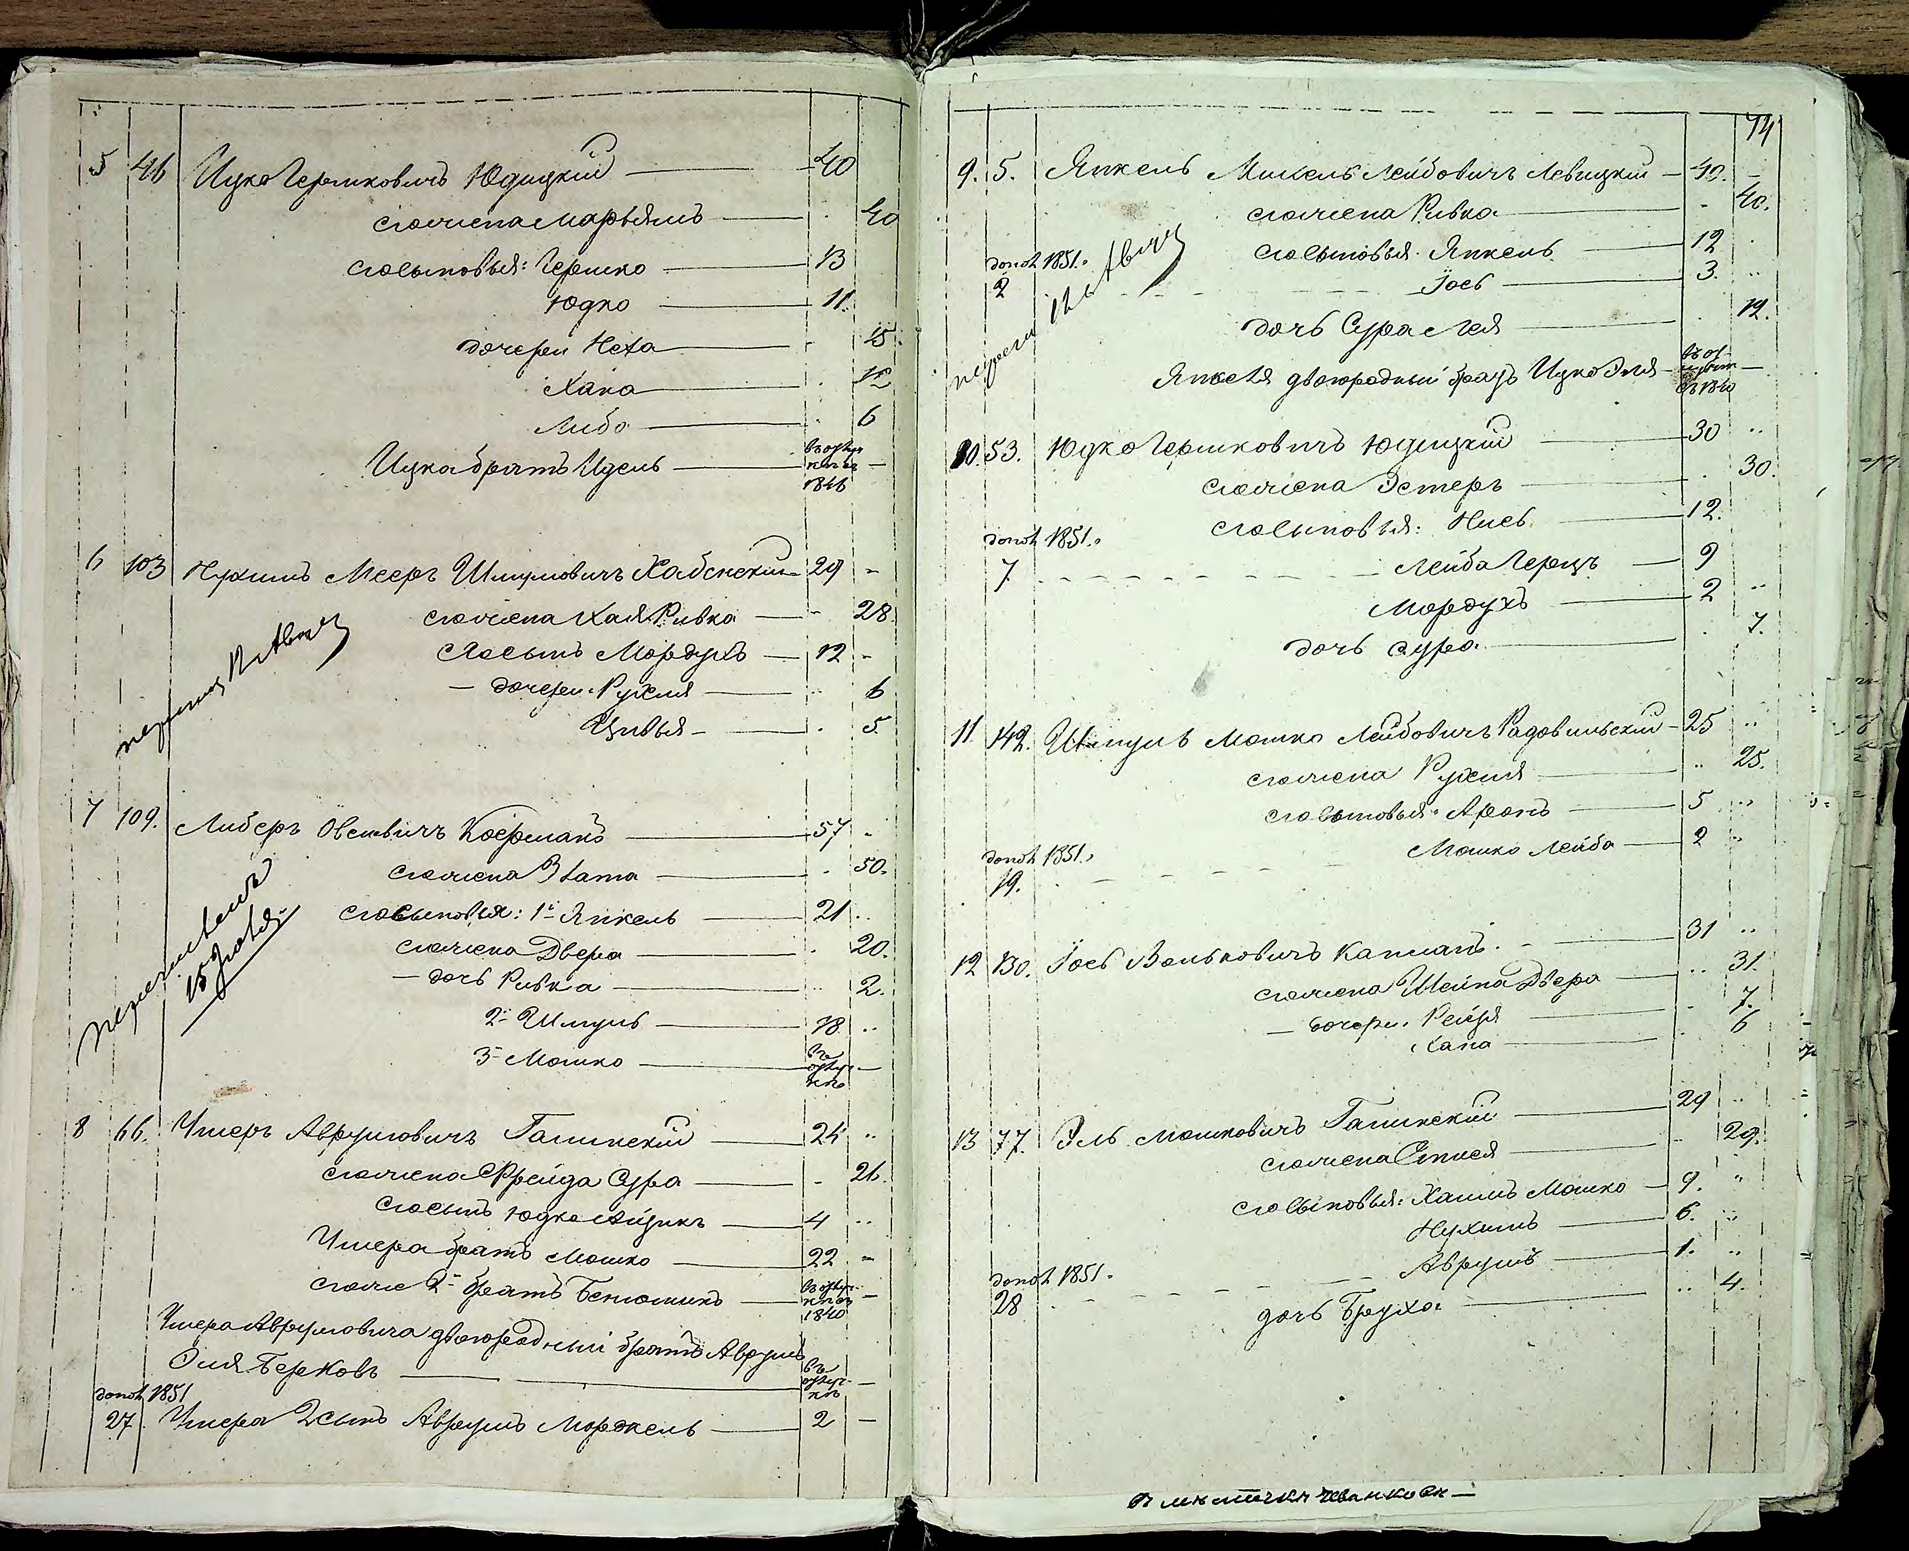 5 46 Ицко Гершковичъ Юдицкій — 40
его жена Марьямъ — 40
его сыновья: Гершко — 13
Юдко — 11.
дочери Неха — 15.
Хана — 12
Либа — 6
Ицка братъ Идель — въ отлучкѣ съ 1846 —
6 103 Нухимъ Мееръ Шмуйловичъ Хабенскій 29 -
его жена Хая Ривка — 28.
его сынъ Мордухъ — 12 -
— дочери: Рухля — 6
Цивья — 5.
7 109. Либеръ Овсеевичъ Косерманъ — 57 -
его жена Злата — 50.
его сыновья: 1й Янкель — 21 ..
его жена Двера — 20.
— дочь Ривка — 2.
2й Шмуль — 18. ..
3й Мошко — въ отлучкѣ —
15 Іюля
8 66. Умеръ Аврумовичъ Галинскій — 24 ..
его жена Фрейда Сура — 26.
его сынъ Юдко Айзикъ — 4 ..
Умера братъ Мошко — 22 -
его же 2й братъ Беньюминъ — въ отлучкѣ съ 1840 —
Умера Аврумовича двоюродный братъ Аврумъ
Эля Берковъ — въ отлучкѣ —
допол. 1851
27. Умера 2 сынъ Аврумъ Мордхель — 2 —
74
9. 5. Янкель Михель Лейбовичъ Левицкій — 40. -
его жена Ривка — 40.
его сыновья: Янкель — 12 .
допол. 1851.
2 Іось — 3. ..
дочь Сура Лея — 12.
Янкеля двоюродный братъ Ицко Эля — въ отлучкѣ съ 1840 —
10. 53. Юдко Гершковичъ Юдицкій — 30 ..
его жена Эстеръ — 30.
его сыновья: Нисъ — 12.
допол. 1851.
7. Лейба Герцъ — 9
Мордухъ — 2 ..
дочь Сура — 7.
11. 142. Шмуль Мошко Лейбовичъ Радовильскій — 25 ..
его жена Рухля — 25.
его сыновья: Аронъ — 5 ..
Мошко Лейба — 2 ..
допол. 1851.
19.
12 130. Іось Вольковичъ Капланъ — 31 ..
его жена Шейна Двера — 31.
— дочери: Рейзя — 7.
Хана — 6
13 77. Эль Мошковичъ Галинскій — 29 ..
его жена — 29.
его сыновья: Хаимъ Мошко — 9. ..
Нухимъ — 6. ..
Аврумъ — 1. ..
допол. 1851.
28 дочь Бруха — 4.